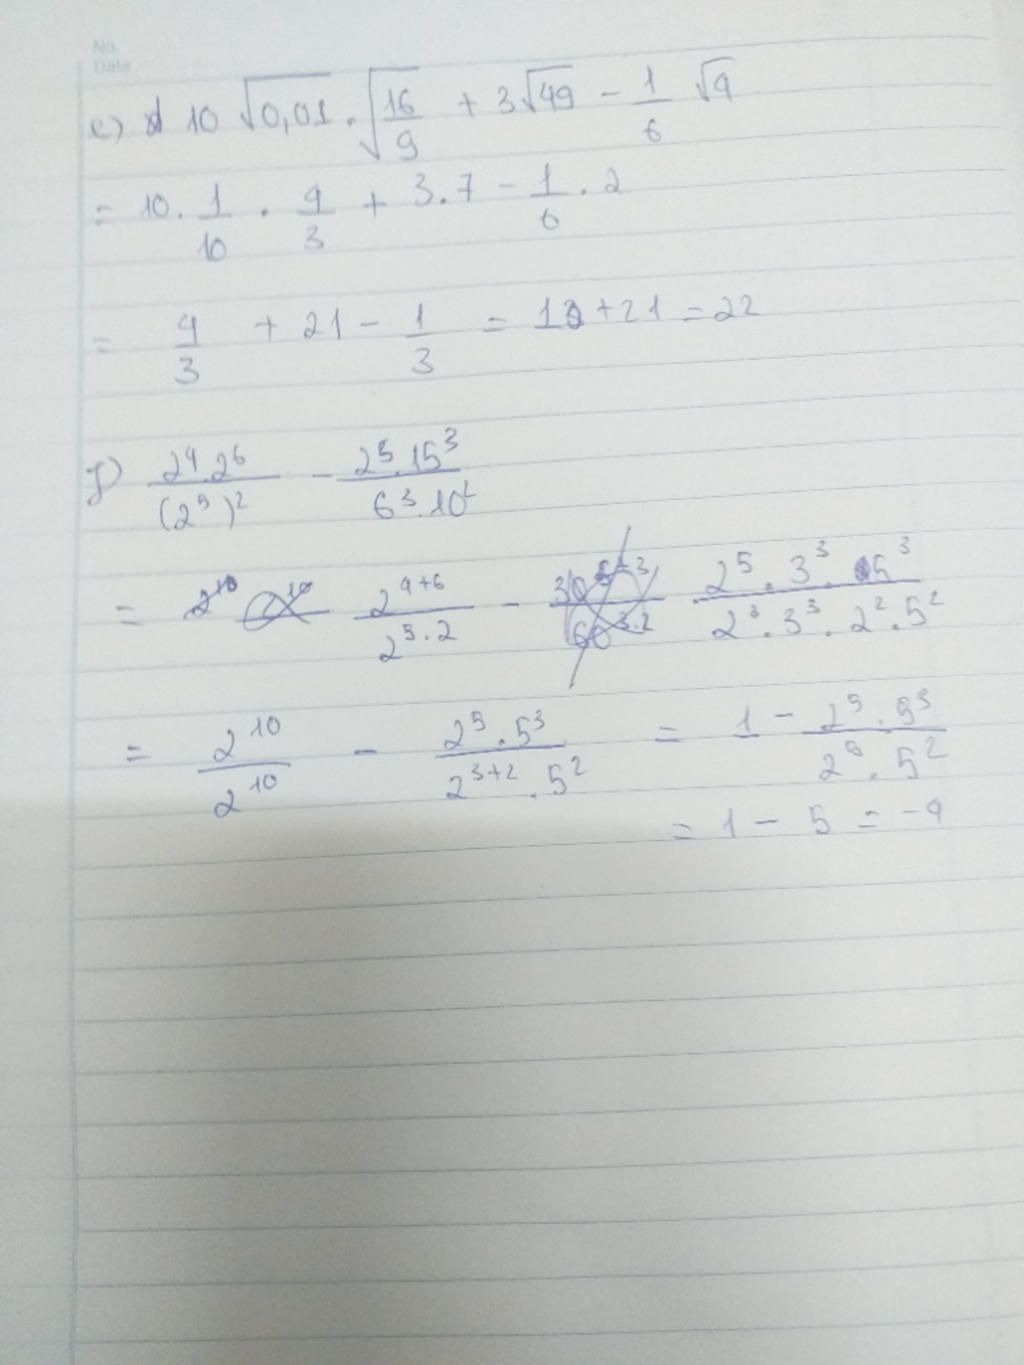 No.
Date
e) 10 √0,01 . √(16/9) + 3√49 - 1/6 √4
= 10 . 1/10 . 4/3 + 3.7 - 1/6 . 2
= 4/3 + 21 - 1/3 = 1 + 21 = 22
f) (2⁴.2⁶)/(2⁵)² - (2⁵.15³)/(6³.10²)
= 2⁴⁺⁶/2⁵·² - (2⁵ . 3³ . 5³)/(2³ . 3³ . 2² . 5²)
= 2¹⁰/2¹⁰ - (2⁵ . 5³)/(2³⁺² . 5²) = 1 - (2⁵ . 5³)/(2⁵ . 5²)
= 1 - 5 = -4